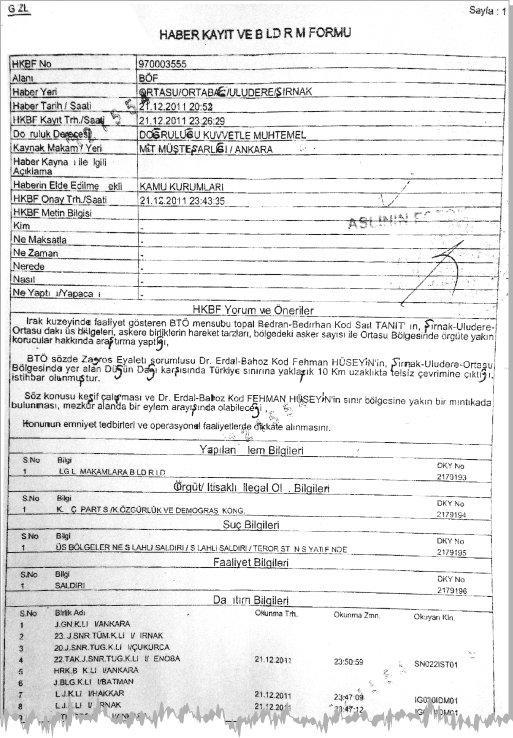 G ZL
Sayfa : 1
HABER KAYIT VE B LD R M FORMU
HKBF No 970003555
Alanı BÖF
Haber Yeri ORTASU/ORTABAĞ/ULUDERE/ŞIRNAK
Haber Tarih / Saati 21.12.2011 20:52
HKBF Kayıt Trh./Saati 21.12.2011 23:26:29
Do ruluk Derecesi DOĞRULUĞU KUVVETLE MUHTEMEL
Kaynak Makam / Yeri MİT MÜSTEŞARLIĞI / ANKARA
Haber Kayna ı ile İlgili
Açıklama
Haberin Elde Edilme ekli KAMU KURUMLARI
HKBF Onay Trh./Saati 21.12.2011 23:43:35
HKBF Metin Bilgisi
Kim -
Ne Maksatla -
Ne Zaman -
Nerede -
Nasıl -
Ne Yaptı ı/Yapaca ı -
ASLININ
HKBF Yorum ve Öneriler
Irak kuzeyinde faaliyet gösteren BTÖ mensubu topal Bedran-Bedirhan Kod Sait TANIT' ın, Şırnak-Uludere-
Ortasu daki üs bilgeleri, askere birliklerin hareket tarzları, bölgedeki asker sayısı ile Ortasu Bölgesinde örgüte yakın
korucular hakkında araştırma yaptığı,
BTÖ sözde Zagros Eyaleti sorumlusu Dr. Erdal-Bahoz Kod Fehman HÜSEYİN'in, Şırnak-Uludere-Ortasu
Bölgesinde yer alan Düğün Dağı karşısında Türkiye sınırına yaklaşık 10 Km uzaklıkta telsiz çevrimine çıktığı,
istihbar olunmuştur.
Söz konusu keşif çalışması ve Dr. Erdal-Bahoz Kod FEHMAN HÜSEYİN'in sınır bölgesine yakın bir mıntıkada
bulunması, mezkur alanda bir eylem arayışında olabileceği
Konunun emniyet tedbirleri ve operasyonel faaliyetlerde dikkate alınmasını.
Yapılan lem Bilgileri
S.No Bilgi DKY No
1 LG L MAKAMLARA B LD R LD 2179193
Örgüt/ İltisaklı İllegal Ol . Bilgileri
S.No Bilgi DKY No
1 K. Ç PART S /K.ÖZGÜRLÜK VE DEMOGRAS KONG. 2179194
Suç Bilgileri
S.No Bilgi DKY No
1 ÜS BÖLGELER NE S LAHLI SALDIRI / S LAHLI SALDIRI / TEROR ST N S YATIF NDE 2179195
Faaliyet Bilgileri
S.No Bilgi DKY No
1 SALDIRI 2179196
Da ıtım Bilgileri
S.No Birlik Adı Okunma Trh. Okunma Zmn. Okuyan Kln.
1 J.GN.K.LI I/ANKARA
2 23. J.SNR.TÜM.K.LI I/ IRNAK
3 20.J.SNR.TUG.K.LI I/ÇUKURCA
4 22.TAK.J.SNR.TUG.K.LI I/ ENOBA 21.12.2011 23:50:59 SN022IST01
5 HRK.B K.LI I/ANKARA
6 J.BLG.K.LI I/BATMAN
7 L.J.K.LI I/HAKKAR 21.12.2011 23:47:09
8 L.J. LI I/ RNAK 21.12.2011 23:47:12